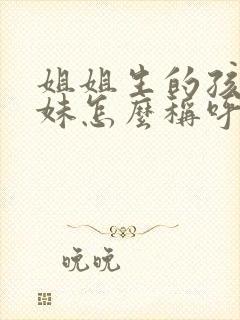 姐姐生的孩
妹怎麼稱呼
晚晚